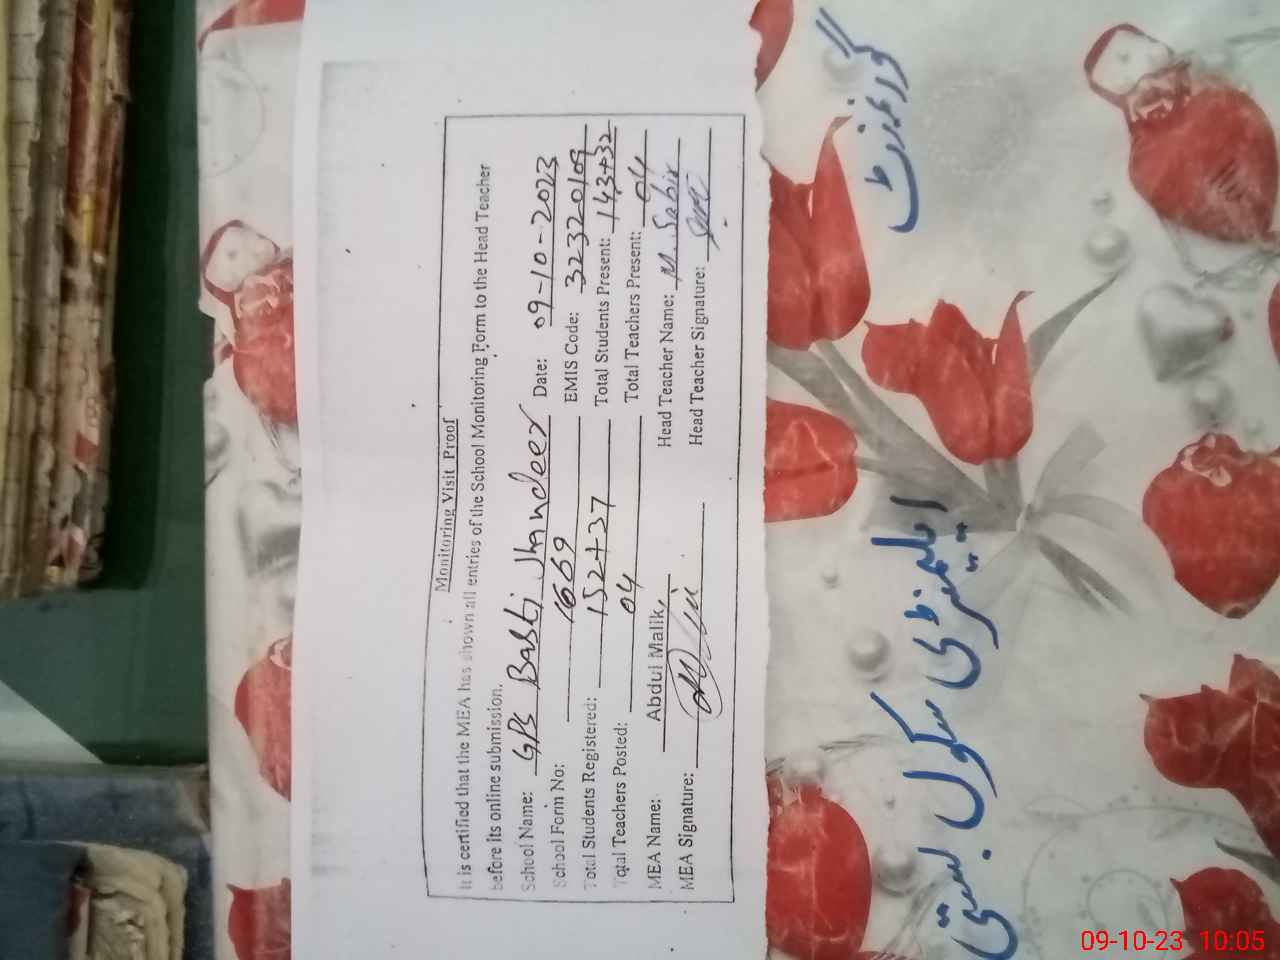 Monitoring Visit Proof
It is certified that the MEA has shown all entries of the School Monitoring Form to the Head Teacher
before its online submission.
School Name: GPS Basti Jhandeer Date: 09-10-2023
School Form No: 1669 EMIS Code: 32320109
Total Students Registered: 152+37 Total Students Present: 143+32
Total Teachers Posted: 04 Total Teachers Present: 04
MEA Name: Abdul Malik, Head Teacher Name: M. Sabir
MEA Signature: Head Teacher Signature:
گورنمنٹ
ایلیمنٹری سکول بستی
09-10-23 10:05